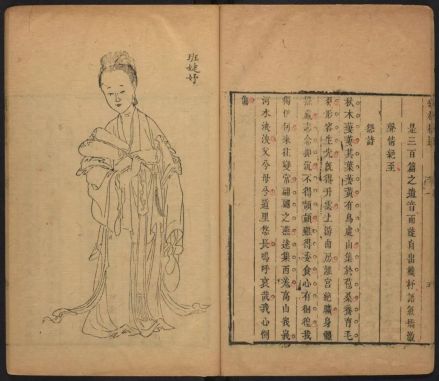 是三百篇之遺音而能自出機杼語氣
聲情絕至
怨詩
秋木萋萋其葉萋黃有鳥處山集於苞桑養育毛
羽形容生光既得升雲上游曲房離宮絕曠身體
摧藏志念抑沉不得頡頏雖得委食心有徊徨我
獨伊何來往變常翩翩之燕遠集西羌高山峩峩
河水泱泱父兮母兮道里悠長嗚呼哀哉我心惻
傷
班婕妤